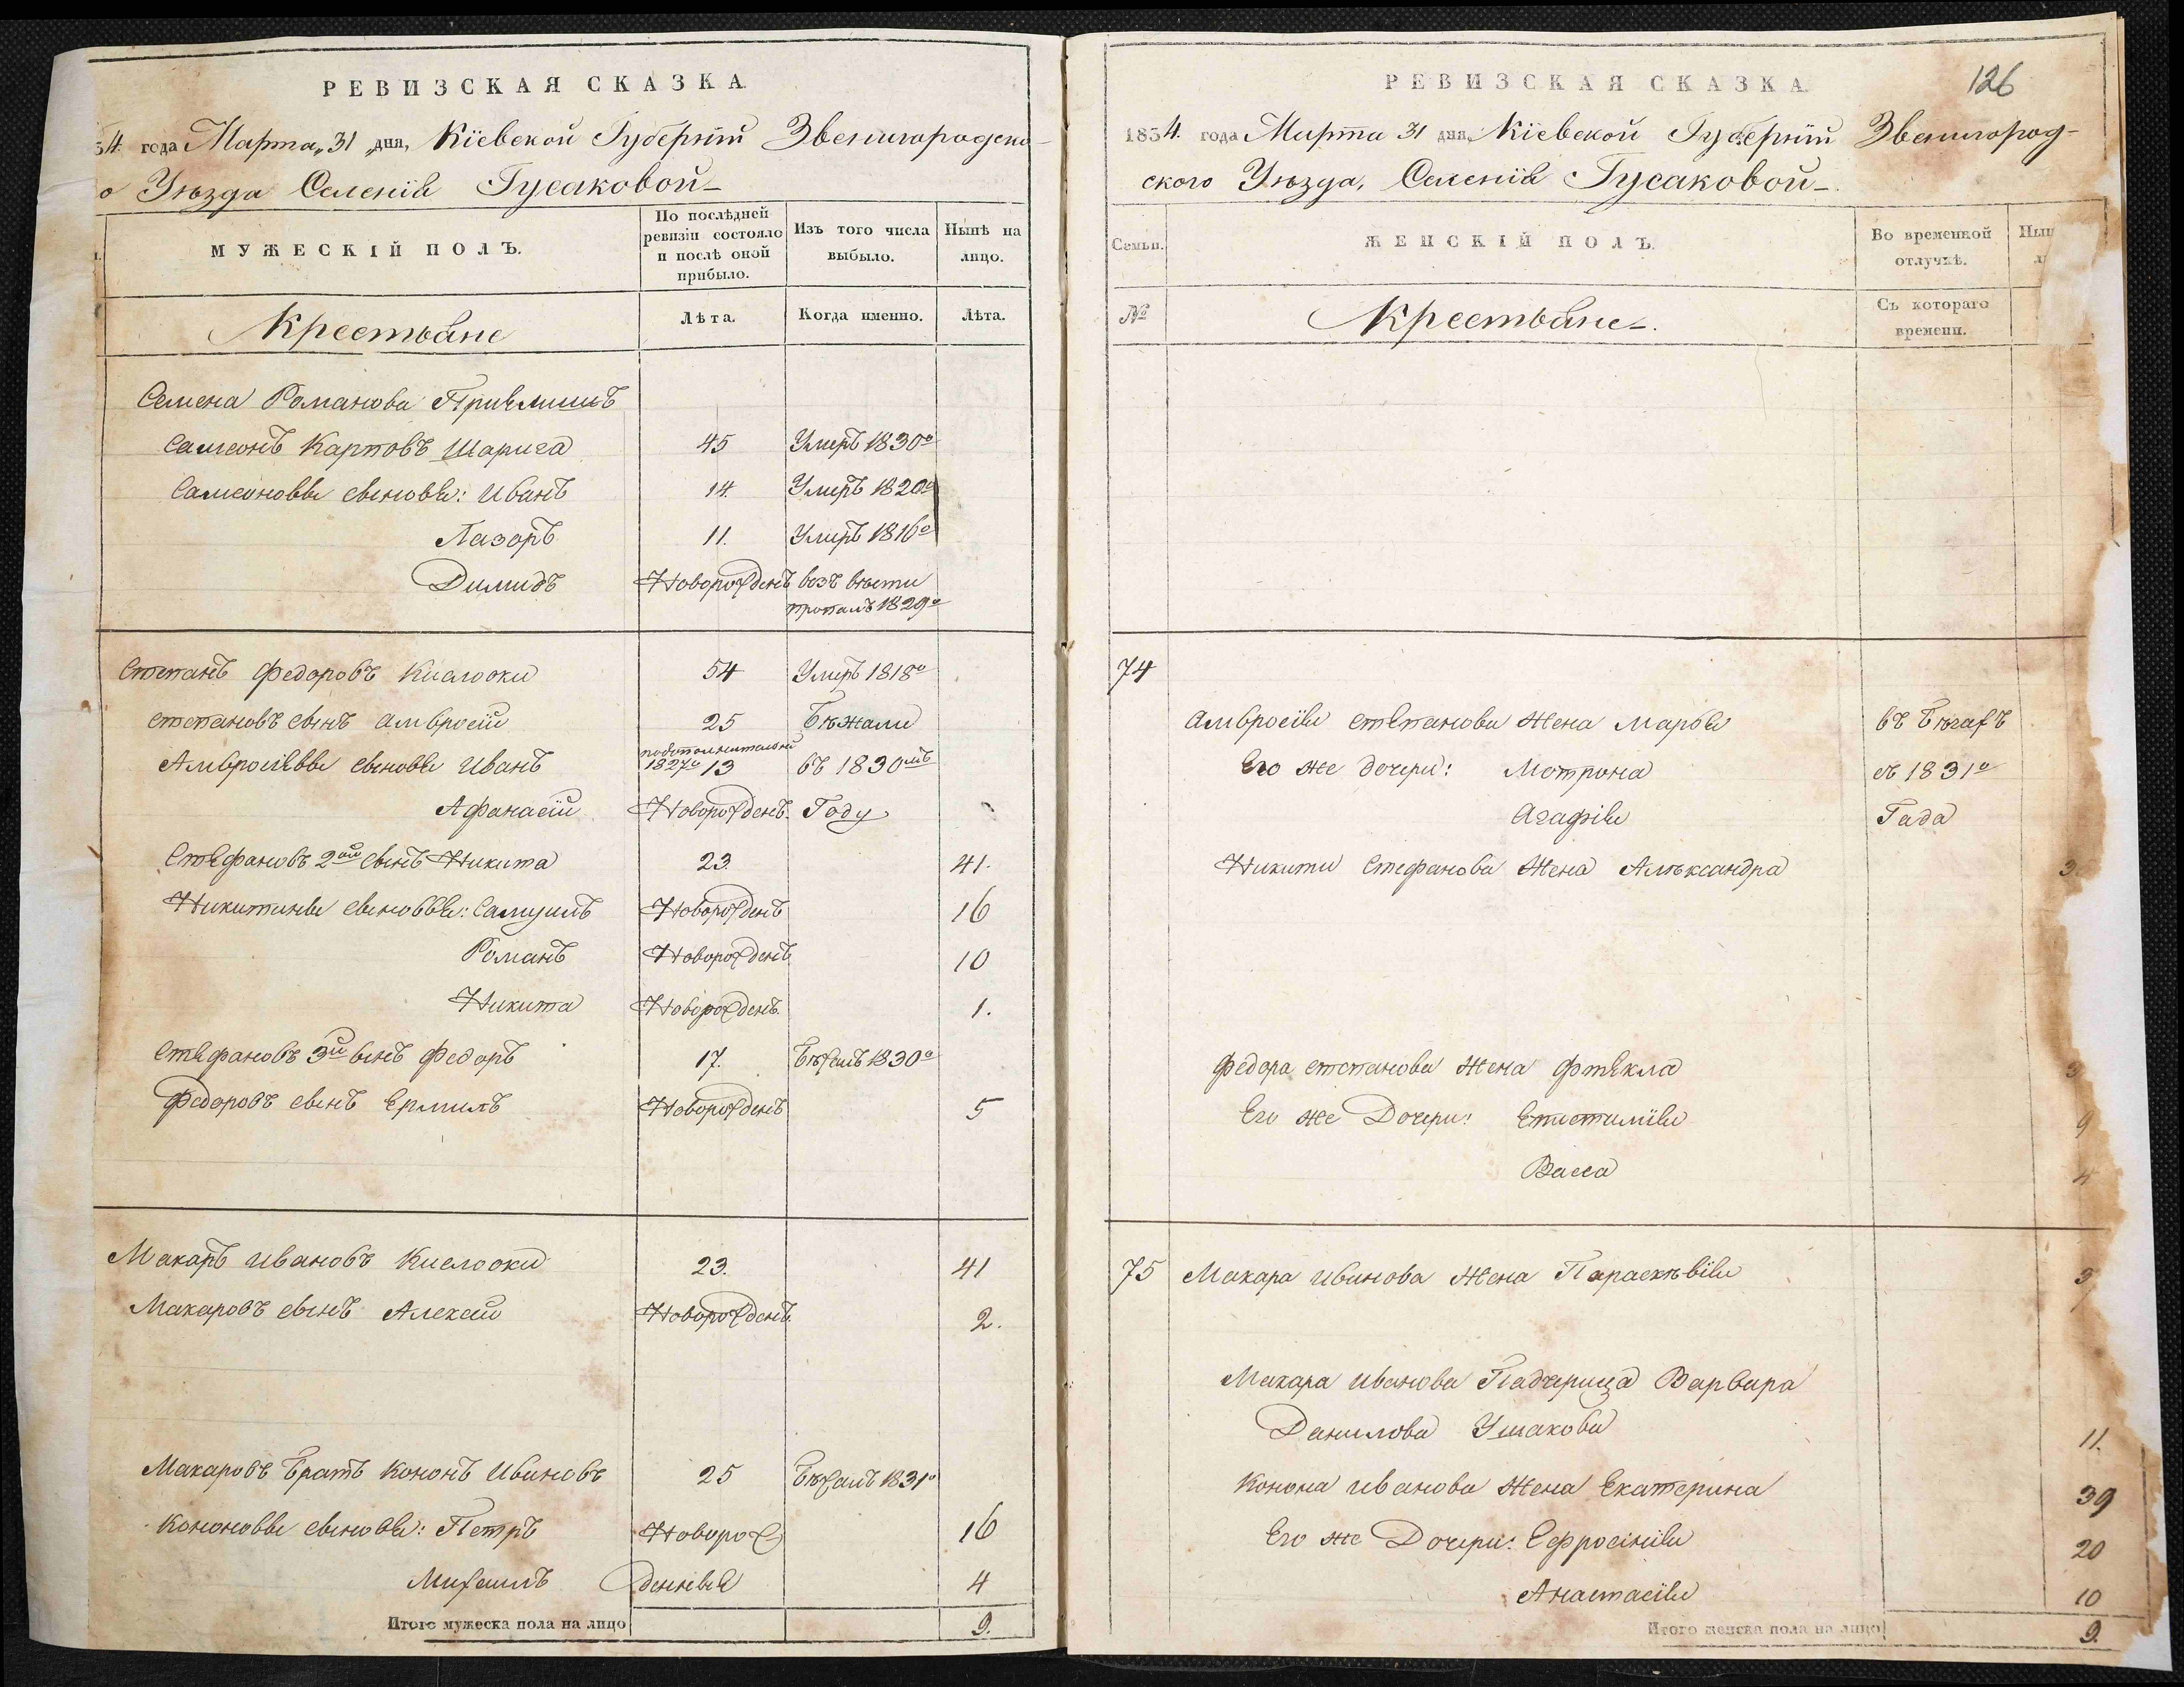 РЕВИЗСКАЯ СКАЗКА
34 года Марта „31 „дня, Кіевской Губерніи Звенигородско-
о Уѣзда Селенія Гусаковой
МУЖЕСКІЙ ПОЛЪ.
По послѣдней ревизіи состояло и послѣ оной прибыло.
Изъ того числа выбыло.
Нынѣ на лицо.
Крестьяне
Лѣта.
Когда именно.
Лѣта.
Семена Романова
Самсонъ Карповъ Шарига 45 Умеръ 1830го
Самсоновы сыновья: Иванъ 14. Умеръ 1820го
Лазоръ 11. Умеръ 1816го
Димидъ Новорожденъ безъ вѣсти
пропалъ 1829го
Степанъ Федоровъ Кислооки 54 Умеръ 1818го
Степановъ сынъ Амвросій 25 Бѣжали
Амвросіевы сыновья Иванъ подополнительной 1827го 13 въ 1830мъ
Афанасій Новорожденъ. Году
Стефановъ 2ой сынъ Никита 23. 41.
Никитины сыновья: Самуилъ Новорожденъ 16
Романъ Новорожденъ 10
Никита Новорожденъ. 1.
Стефановъ 3й сынъ Федоръ 17. Бѣжалъ 1830го
Федоровъ сынъ Ермилъ Новорожденъ 5
Макаръ Ивановъ Кислооки 23. 41
Макаровъ сынъ Алексій Новорожденъ. 2.
Макаровъ Братъ Кононъ Ивановъ 25 Бѣжалъ 1831го
Кононовы сыновья: Петръ Новорож 16
Михаилъ денныя 4
Итого мужеска пола на лицо 9.
126
РЕВИЗСКАЯ СКАЗКА.
1834. года Марта 31 дня, Кіевской Губерніи Звенигород-
ского Уѣзда, Селенія Гусаковой
Семьи.
ЖЕНСКІЙ ПОЛЪ.
Во временной отлучкѣ.
№
Крестьяне
Съ котораго времени.
74
Амвросія Степанова Жена Марфа въ Бѣгахъ
Его же дочери: Мотрона съ 1831го
Агафія Года
Никити Стефанова Жена Алѣксандра 3
Федора Степанова Жена Фтекла 3
Его же Дочери: Епистимія 9
Васса 4
75 Макара Иванова Жена Параскѣвія 3
Макара Иванова Падчерица Варвара
Данилова Ушакова 11.
Конона Иванова Жена Екатерина 39
Его же Дочери: Ефросинія 20
Анастасія 10
Итого женска пола на лицо 9.